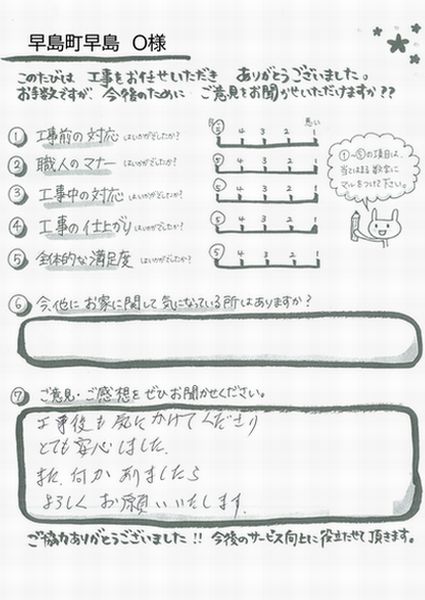 早島町早島　O様
このたびは 工事をお任せいただき ありがとうございました。
お手数ですが、今後のために ご意見をお聞かせいただけますか??
良い 悪い
① 工事前の対応 はいかがでしたか? 5 4 3 2 1
② 職人のマナー はいかがでしたか? 5 4 3 2 1
③ 工事中の対応 はいかがでしたか? 5 4 3 2 1
④ 工事の仕上がり はいかがでしたか? 5 4 3 2 1
⑤ 全体的な満足度 はいかがでしたか? 5 4 3 2 1
①~⑤の項目は、
当てはまる数字に
マルをつけて下さい。
⑥ 今、他に お家に関して 気になっている所 はありますか?
⑦ ご意見・ご感想を ぜひお聞かせください。
工事後も気にかけてくださり
とても安心しました。
また、何か ありましたら
よろしく お願いいたします。
ご協力ありがとうございました!! 今後のサービス向上に役立たせて頂きます。